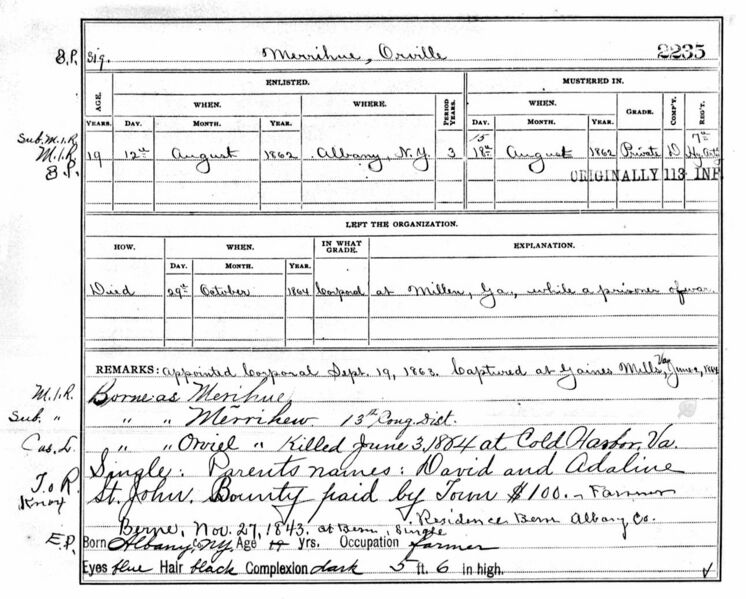 S.P. Sig. Merrihue, Orville 2235
ENLISTED. MUSTERED IN.
AGE. WHEN. WHERE. PERIOD YEARS. WHEN. GRADE. COMP'Y. REG'T.
YEARS. DAY. MONTH. YEAR. DAY. MONTH. YEAR.
Sub. M.I.R. 15 7th
M.I.R. 19 12th August 1862 Albany, N.Y. 3 18th August 1862 Private D Hy. Arty
B.P. ORIGINALLY 113 INF
LEFT THE ORGANIZATION.
HOW. WHEN. IN WHAT GRADE. EXPLANATION.
DAY. MONTH. YEAR.
Died 29th October 1864 Corporal at Millen, Ga., while a prisoner of war.
REMARKS: Appointed Corporal Sept. 19, 1863. Captured at Gaines Mills, Va., June 2, 1864
M.I.R. Borne as Merihue
Sub. " " " Merrikew 13th Cong. Dist.
Cas. L. " " Orviel " Killed June 3, 1864 at Cold Harbor, Va.
T. of R. Single: Parents names: David and Adaline
Knox St. John. Bounty paid by Town $100. - Farmer
Berne, Nov. 27, 1843. at Bern, Single Residence Bern Albany Co.
E.P. Born Albany Co NY Age 19 yrs. Occupation farmer
Eyes blue Hair black Complexion dark 5 ft. 6 in high. √